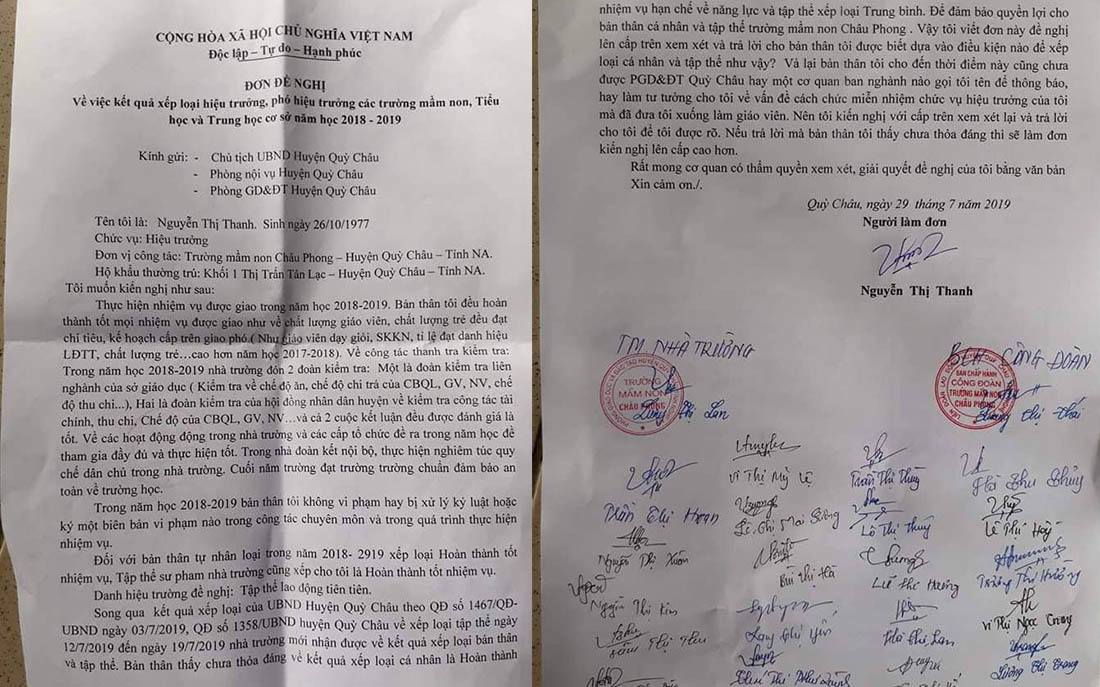 CỘNG HÒA XÃ HỘI CHỦ NGHĨA VIỆT NAM
Độc lập – Tự do – Hạnh phúc
ĐƠN ĐỀ NGHỊ
Về việc kết quả xếp loại hiệu trưởng, phó hiệu trưởng các trường mầm non, Tiểu
học và Trung học cơ sở năm học 2018 - 2019
Kính gửi: - Chủ tịch UBND Huyện Quỳ Châu
- Phòng nội vụ Huyện Quỳ Châu
- Phòng GD&ĐT Huyện Quỳ Châu
Tên tôi là: Nguyễn Thị Thanh. Sinh ngày 26/10/1977
Chức vụ: Hiệu trưởng
Đơn vị công tác: Trường mầm non Châu Phong – Huyện Quỳ Châu – Tỉnh NA.
Hộ khẩu thường trú: Khối 1 Thị Trấn Tân Lạc – Huyện Quỳ Châu – Tỉnh NA.
Tôi muốn kiến nghị như sau:
Thực hiện nhiệm vụ được giao trong năm học 2018-2019. Bản thân tôi đều hoàn
thành tốt mọi nhiệm vụ được giao như về chất lượng giáo viên, chất lượng trẻ đều đạt
chỉ tiêu, kế hoạch cấp trên giao phó.( Như giáo viên dạy giỏi, SKKN, tỉ lệ đạt danh hiệu
LĐTT, chất lượng trẻ…cao hơn năm học 2017-2018). Về công tác thanh tra kiểm tra:
Trong năm học 2018-2019 nhà trường đón 2 đoàn kiểm tra: Một là đoàn kiểm tra liên
nghành của sở giáo dục ( Kiểm tra về chế độ ăn, chế độ chi trả của CBQL, GV, NV, chế
độ thu chi...), Hai là đoàn kiểm tra của hội đồng nhân dân huyện về kiểm tra công tác tài
chính, thu chi, Chế độ của CBQL, GV, NV…và cả 2 cuộc kết luận đều được đánh giá là
tốt. Về các hoạt động động trong nhà trường và các cấp tổ chức đề ra trong năm học đề
tham gia đầy đủ và thực hiện tốt. Trong nhà đoàn kết nội bộ, thực hiện nghiêm túc quy
chế dân chủ trong nhà trường. Cuối năm trường đạt trường trường chuẩn đảm bảo an
toàn về trường học.
Trong năm học 2018-2019 bản thân tôi không vi phạm hay bị xử lý kỷ luật hoặc
ký một biên bản vi phạm nào trong công tác chuyên môn và trong quá trình thực hiện
nhiệm vụ.
Đối với bản thân tự nhân loại trong năm 2018- 2919 xếp loại Hoàn thành tốt
nhiệm vụ, Tập thể sư phạm nhà trường cũng xếp cho tôi là Hoàn thành tốt nhiệm vụ.
Danh hiệu trường đề nghị: Tập thể lao động tiên tiên.
Song qua kết quả xếp loại của UBND Huyện Quỳ Châu theo QĐ số 1467/QĐ-
UBND ngày 03/7/2019, QĐ số 1358/UBND huyện Quỳ Châu về xếp loại tập thể ngày
12/7/2019 đến ngày 19/7/2019 nhà trường mới nhận được về kết quả xếp loại bản thân
và tập thể. Bản thân thấy chưa thỏa đáng về kết quả xếp loại cá nhân là Hoàn thành
nhiệm vụ hạn chế về năng lực và tập thể xếp loại Trung bình. Để đảm bảo quyền lợi cho
bản thân cá nhân và tập thể trường mầm non Châu Phong . Vậy tôi viết đơn này đề nghị
lên cấp trên xem xét và trả lời cho bản thân tôi được biết dựa vào điều kiện nào để xếp
loại cá nhân và tập thể như vậy? Vả lại bản thân tôi cho đến thời điểm này cũng chưa
được PGD&ĐT Quỳ Châu hay một cơ quan ban nghành nào gọi tôi tên để thông báo,
hay làm tư tưởng cho tôi về vấn đề cách chức miễn nhiệm chức vụ hiệu trưởng của tôi
mà đã đưa tôi xuống làm giáo viên. Nên tôi kiến nghị với cấp trên xem xét lại và trả lời
cho tôi để tôi được rõ. Nếu trả lời mà bản thân tôi thấy chưa thỏa đáng thì sẽ làm đơn
kiến nghị lên cấp cao hơn.
Rất mong cơ quan có thẩm quyền xem xét, giải quyết đề nghị của tôi bằng văn bản
Xin cảm ơn./.
Quỳ Châu, ngày 29 tháng 7 năm 2019
Người làm đơn
Nguyễn Thị Thanh
TM NHÀ TRƯỜNG
BCH CÔNG ĐOÀN
TRƯỜNG
MẦM NON
CHÂU PHONG
BAN CHẤP HÀNH
CÔNG ĐOÀN
TRƯỜNG MẦM NON
CHÂU PHONG
Thị Lan
Thị Thái
Vi Thị Mỹ Lệ
Trần Thị Thúy
Hà Thu Thủy
Trần Thị Hoan
Lô Thị Thủy
Nguyễn Thị Xuân
Bùi Thị Hà
Trương Thị Hường
Nguyễn Thị Kim
Vi Thị Ngọc
Lang Thị Yên
Hà Thị Lan
Lương Thị Trang